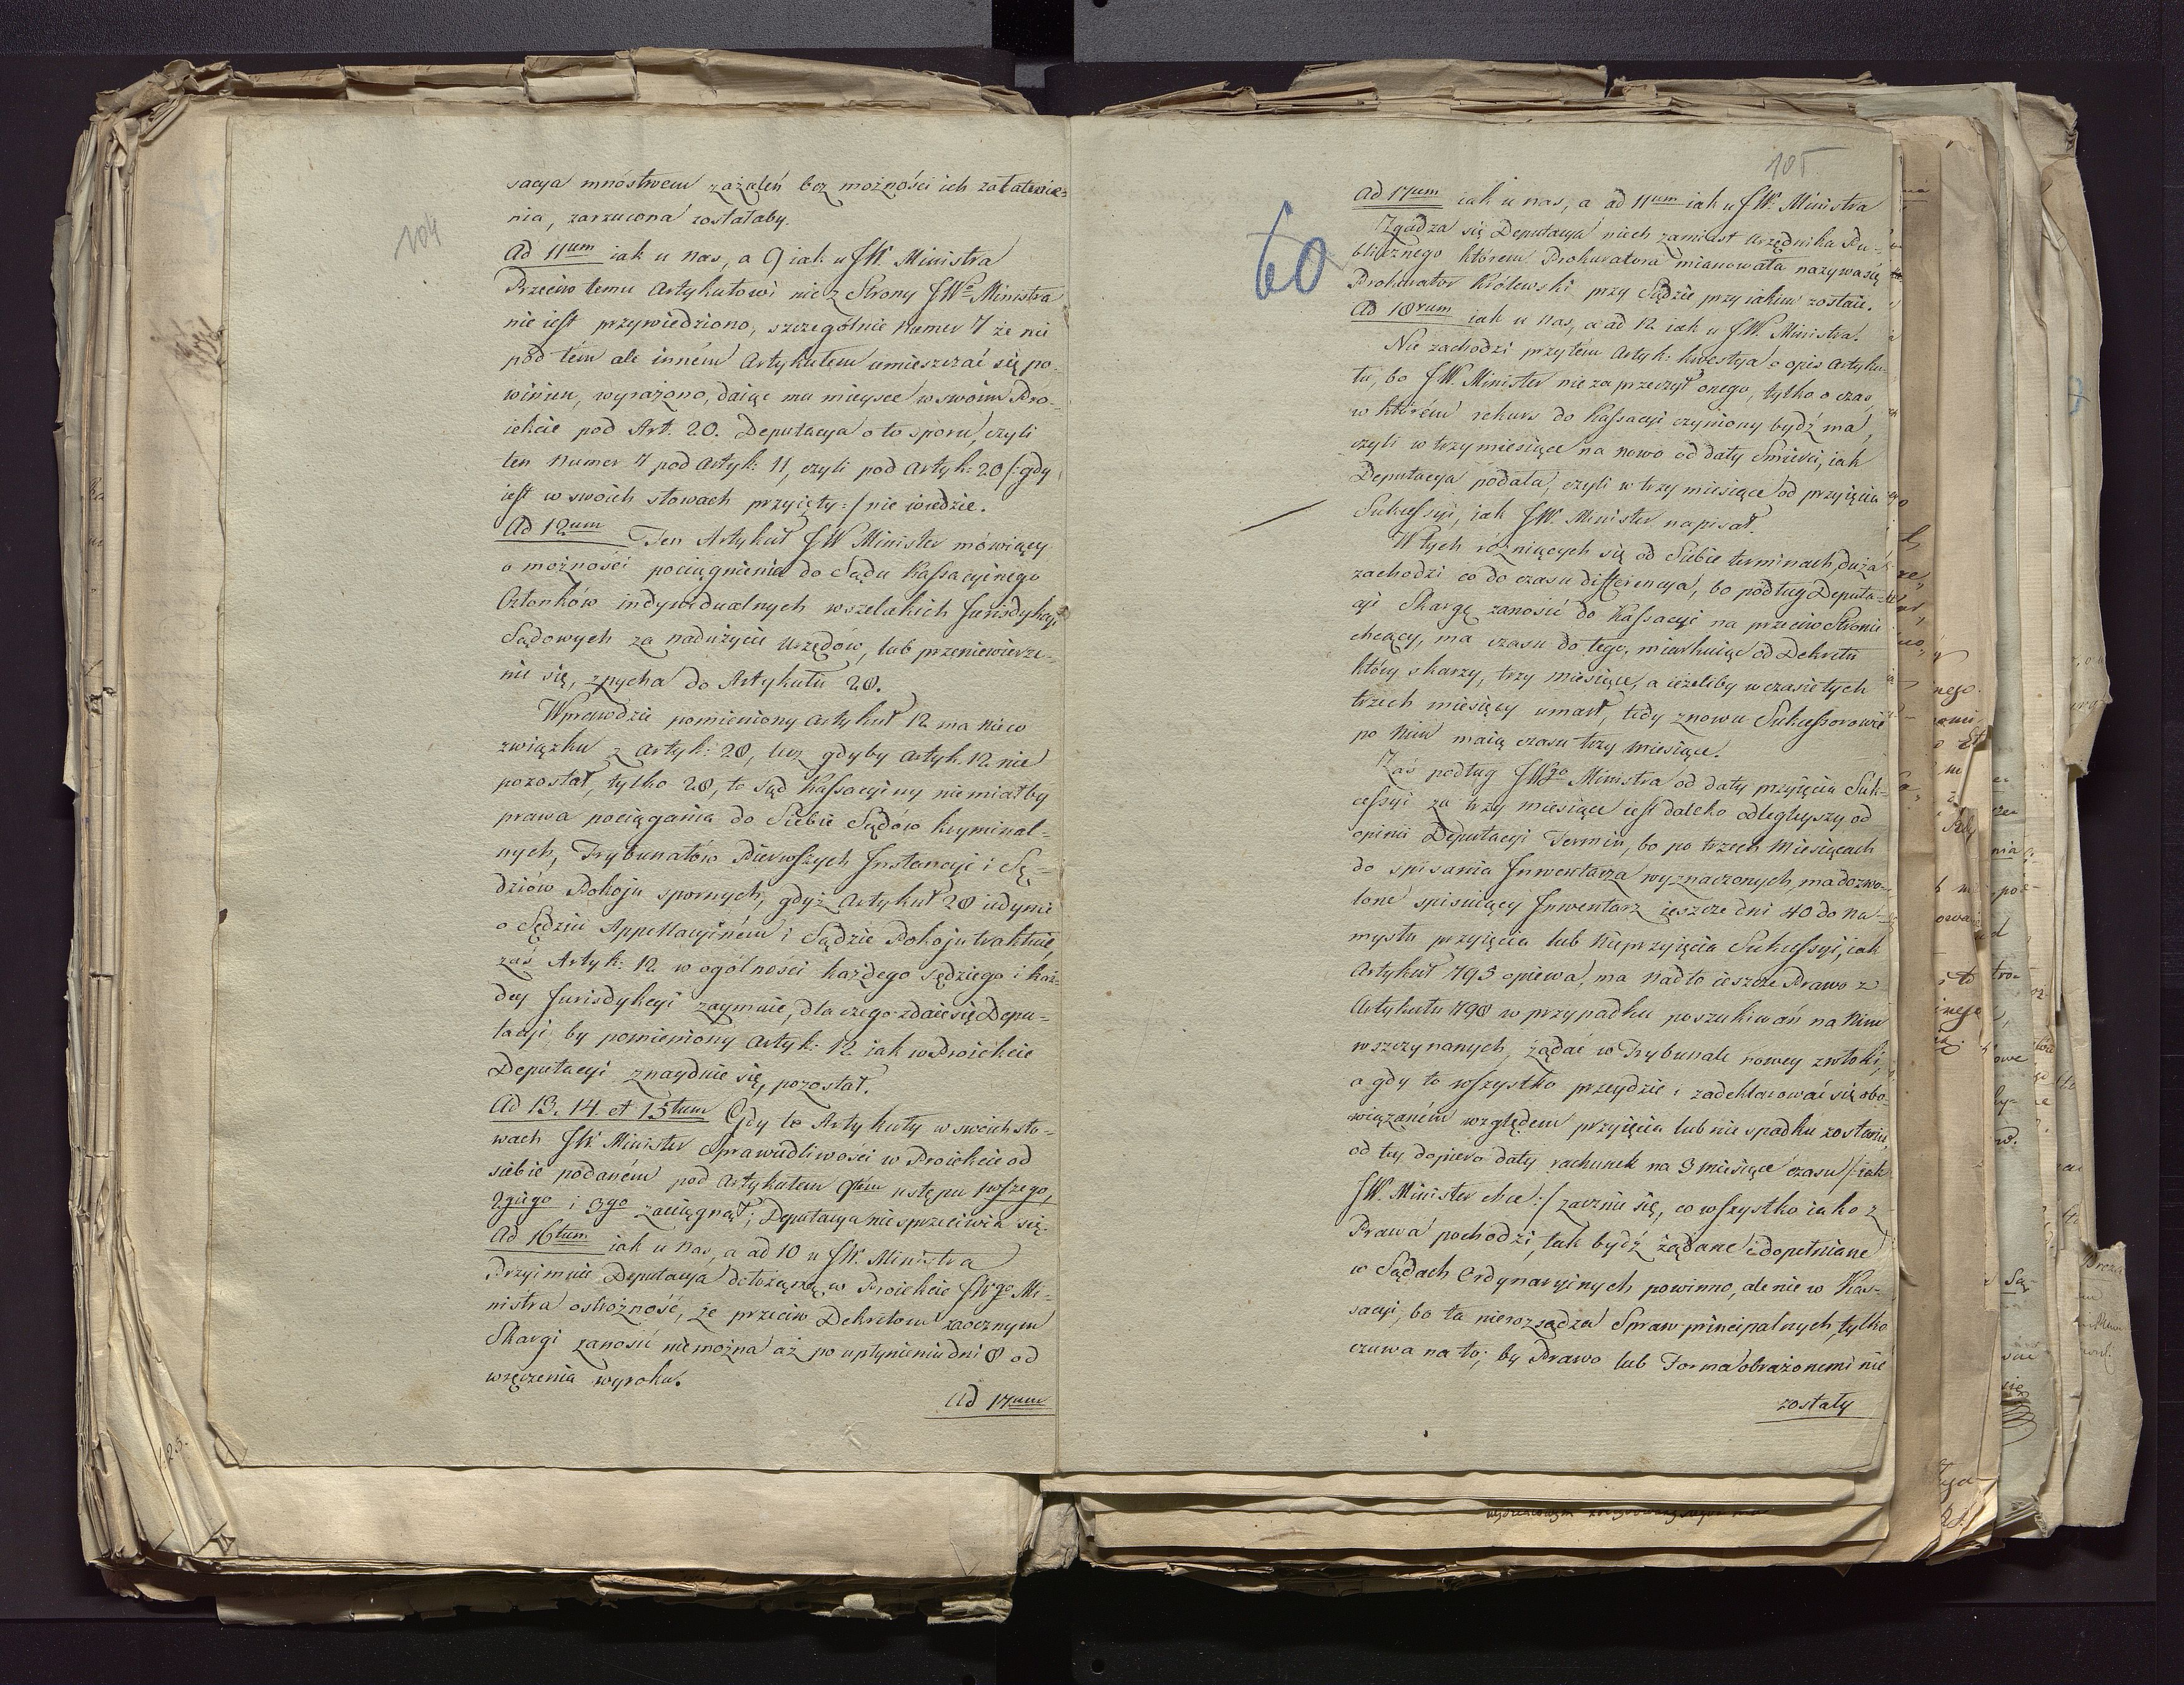 104
sacya mnóstwem zażaleń bez możności ich załatwie-
nia, zarzucona zostałaby.
Ad 11um iak u nas, a 9 iak u JW. Ministra
Przeciw temu Artykułowi nic z Strony JWo Ministra
nie iest przywiedziono, szczególnie Numer 7 że nie
pod tém ale inném Artykułem umieszczać się po-
winien, wyrażono, daiąc mu mieysce w swoim Pro-
iekcie pod Art. 20. Deputacya o to sporu, czyli
ten Numer 7 pod Artyk: 11, czyli pod Artyk: 20 /:gdy
iest w swoich słowach przyięty:/ nie wiedzie.
Ad 12um Ten Artykuł JW Minister mówiący
o możności pociągnienia do Sądu Kassacyinego
Członków indywidualnych wszelakich Jurisdykcyi
Sądowych za nadużycie Urzędów, lub przeniewierze-
nie się, zpycha do Artykułu 28.
Wprawdzie pomieniony Artykuł 12 ma nieco
związku z Artyk: 28, lecz gdyby Artyk. 12. nie
pozostał, tylko 28, to Sąd Kassacyiny niemiałby
prawa pociągania do Siebie Sądów kryminal-
nych, Trybunałów Pierwszych Instancyi i Sę-
dziów Pokoju spornych, gdyż Artykuł 28 iedynie
o Sędziu Appellacyiném i Sądzie Pokoju traktuie,
zaś Artyk: 12. w ogólności każdego Sędziego i każ-
dey Jurisdykcyi zaymuie, dla czego zdaie się Depu-
tacyi by pomieniony Artyk: 12. iak w Proiekcie
Deputacyi znayduie się, pozostał.
Ad 13. 14. et 15tum Gdy te Artykuły w swoich sło-
wach JW. Minister Sprawiedliwości w Proiekcie od
siebie podaném pod Artykułem 9tém ustępu 1wszego,
2giego i 3go zaciągnął; Deputacya nie sprzeciwia się.
Ad 16tum iak u nas, a ad 10 u JW. Ministra
Przyimuie Deputacya dołożoną w Proiekcie JWgo Mi-
nistra ostrożność, że przeciw Dekretom zaocznym
Skargi zanosić nie można aż po upłynieniu dni 8 od
wręczenia wyroku.
Ad 17um
105
60
Ad 17um iak u nas, a ad 11um iak u JW. Ministra
Zgadza się Deputacya niech zamiast Urzędnika Pu-
blicznego którem Prokuratora mianowała nazywa się
Prokurator Królewski przy Sądzie przy iakim zostaie.
Ad 18vum iak u nas, a ad 12 iak u JW. Ministra.
Nie zachodzi przytém Artyk: kwestya o opis Artyku-
łu, bo JW. Minister nie zaprzeczył onego, tylko o czas,
w którém rekurs do Kassacyi czyniony bydź ma,
czyli w trzy miesiące na nowo od daty Śmierci, iak
Deputacya podała, czyli w trzy miesiące od przyięcia
Sukcessyi, iak JW. Minister napisał.
W tych różniących się od Siebie terminach, duża
zachodzi co do czasu differencya, bo podług Deputa-
cyi Skargę zanosić do Kassacyi na przeciw Stronie
chcący, ma czasu do tego, miarkuiąc od Dekretu
który skarzy, trzy miesiące, a ieżeliby w czasie tych
trzech miesięcy umarł, tedy znowu Sukcessorowie
po Nim maią czasu trzy miesiące.
Zaś podług JWgo Ministra od daty przyięcia Suk-
cessyi za trzy miesiące iest daleko odległeyszy od
opinii Deputacyi Termin, bo po trzech Miesiącach
do spisania Inwentarza wyznaczonych, ma dozwo-
lone spisuiący Inwentarz ieszcze dni 40 do na-
mysłu przyięcia lub nieprzyięcia Sukcessyi, iak
Artykuł 795 opiewa, ma nadto ieszcze Prawo z
Artykułu 798 w przypadku poszukiwań na Nim
wszczynanych, żądać w Trybunale nowey zwłoki,
a gdy to wszystko przeydzie i zadeklarować się obo-
wiązaném względem przyięcia lub nie spadku zostanie,
od tey dopiero daty rachunek na 3 miesiące czasu /:iak
JW. Minister chce:/ zacznie się, co wszystko iako z
Prawa pochodzi, tak bydź żądane i dopełniane
w Sądach Ordynaryinych powinno, ale nie w Kas-
sacyi, bo ta nierozsądza Spraw principalnych, tylko
czuwa na to; by Prawo lub Forma obrażonemi nie
zostały